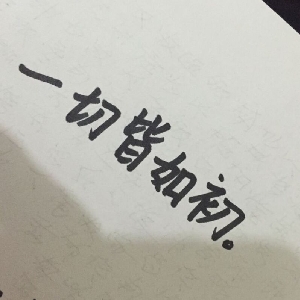 一切皆如初。